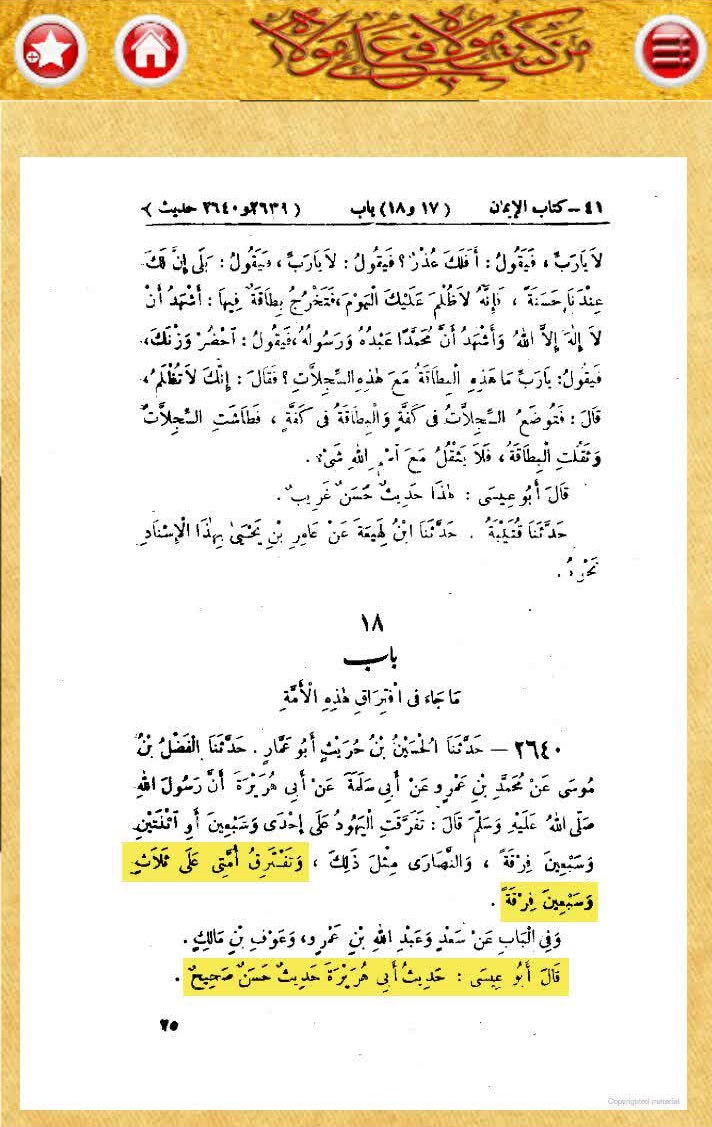 من كنت مولاه فعلي مولاه
٤١ - كتاب الإيمان ( ١٧ و ١٨ ) باب ( ٢٦٣٩ و ٢٦٤٠ حديث )
لَا يَارَبِّ ، فَيَقُولُ : أَفَلَكَ عُذْرٌ ؟ فَيَقُولُ : لَا يَارَبِّ ، فَيَقُولُ : بَلَى إِنَّ لَكَ
عِنْدَنَا حَسَنَةً ، فَإِنَّهُ لَا ظُلْمَ عَلَيْكَ الْيَوْمَ ، فَتَخْرُجُ بِطَاقَةٌ فِيهَا : أَشْهَدُ أَنْ
لَا إِلٰهَ إِلَّا اللهُ وَأَشْهَدُ أَنَّ مُحَمَّدًا عَبْدُهُ وَرَسُولُهُ ، فَيَقُولُ : احْضُرْ وَزْنَكَ ،
فَيَقُولُ : يَارَبِّ مَا هَذِهِ الْبِطَاقَةُ مَعَ هٰذِهِ السِّجِلَّاتِ ؟ فَقَالَ : إِنَّكَ لَا تُظْلَمُ ،
قَالَ : فَتُوضَعُ السِّجِلَّاتُ فِي كَفَّةٍ وَالْبِطَاقَةُ فِي كَفَّةٍ ، فَطَاشَتِ السِّجِلَّاتُ
وَثَقُلَتِ الْبِطَاقَةُ ، فَلَا يَثْقُلُ مَعَ اسْمِ اللهِ شَيْءٌ .
قَالَ أَبُو عِيسَى : هٰذَا حَدِيثٌ حَسَنٌ غَرِيبٌ .
حَدَّثَنَا قُتَيْبَةُ . حَدَّثَنَا ابْنُ لَهِيعَةَ عَنْ عَامِرِ بْنِ يَحْيَى بِهٰذَا الْإِسْنَادِ
نَحْوَهُ .
١٨
باب
مَا جَاءَ فِي افْتِرَاقِ هٰذِهِ الْأُمَّةِ
٢٦٤٠ - حَدَّثَنَا الْحُسَيْنُ بْنُ حُرَيْثٍ أَبُو عَمَّارٍ . حَدَّثَنَا الْفَضْلُ بْنُ
مُوسَى عَنْ مُحَمَّدِ بْنِ عَمْرٍو عَنْ أَبِي سَلَمَةَ عَنْ أَبِي هُرَيْرَةَ أَنَّ رَسُولَ اللهِ
صَلَّى اللهُ عَلَيْهِ وَسَلَّمَ قَالَ : تَفَرَّقَتِ الْيَهُودُ عَلَى إِحْدَى وَسَبْعِينَ أَوِ اثْنَتَيْنِ
وَسَبْعِينَ فِرْقَةً ، وَالنَّصَارَى مِثْلَ ذَلِكَ ، وَتَفْتَرِقُ أُمَّتِي عَلَى ثَلَاثٍ
وَسَبْعِينَ فِرْقَةً .
وَفِي الْبَابِ عَنْ سَعْدٍ وَعَبْدِ اللهِ بْنِ عَمْرٍو ، وَعَوْفِ بْنِ مَالِكٍ .
قَالَ أَبُو عِيسَى : حَدِيثُ أَبِي هُرَيْرَةَ حَدِيثٌ حَسَنٌ صَحِيحٌ .
٢٥
Copyrighted material